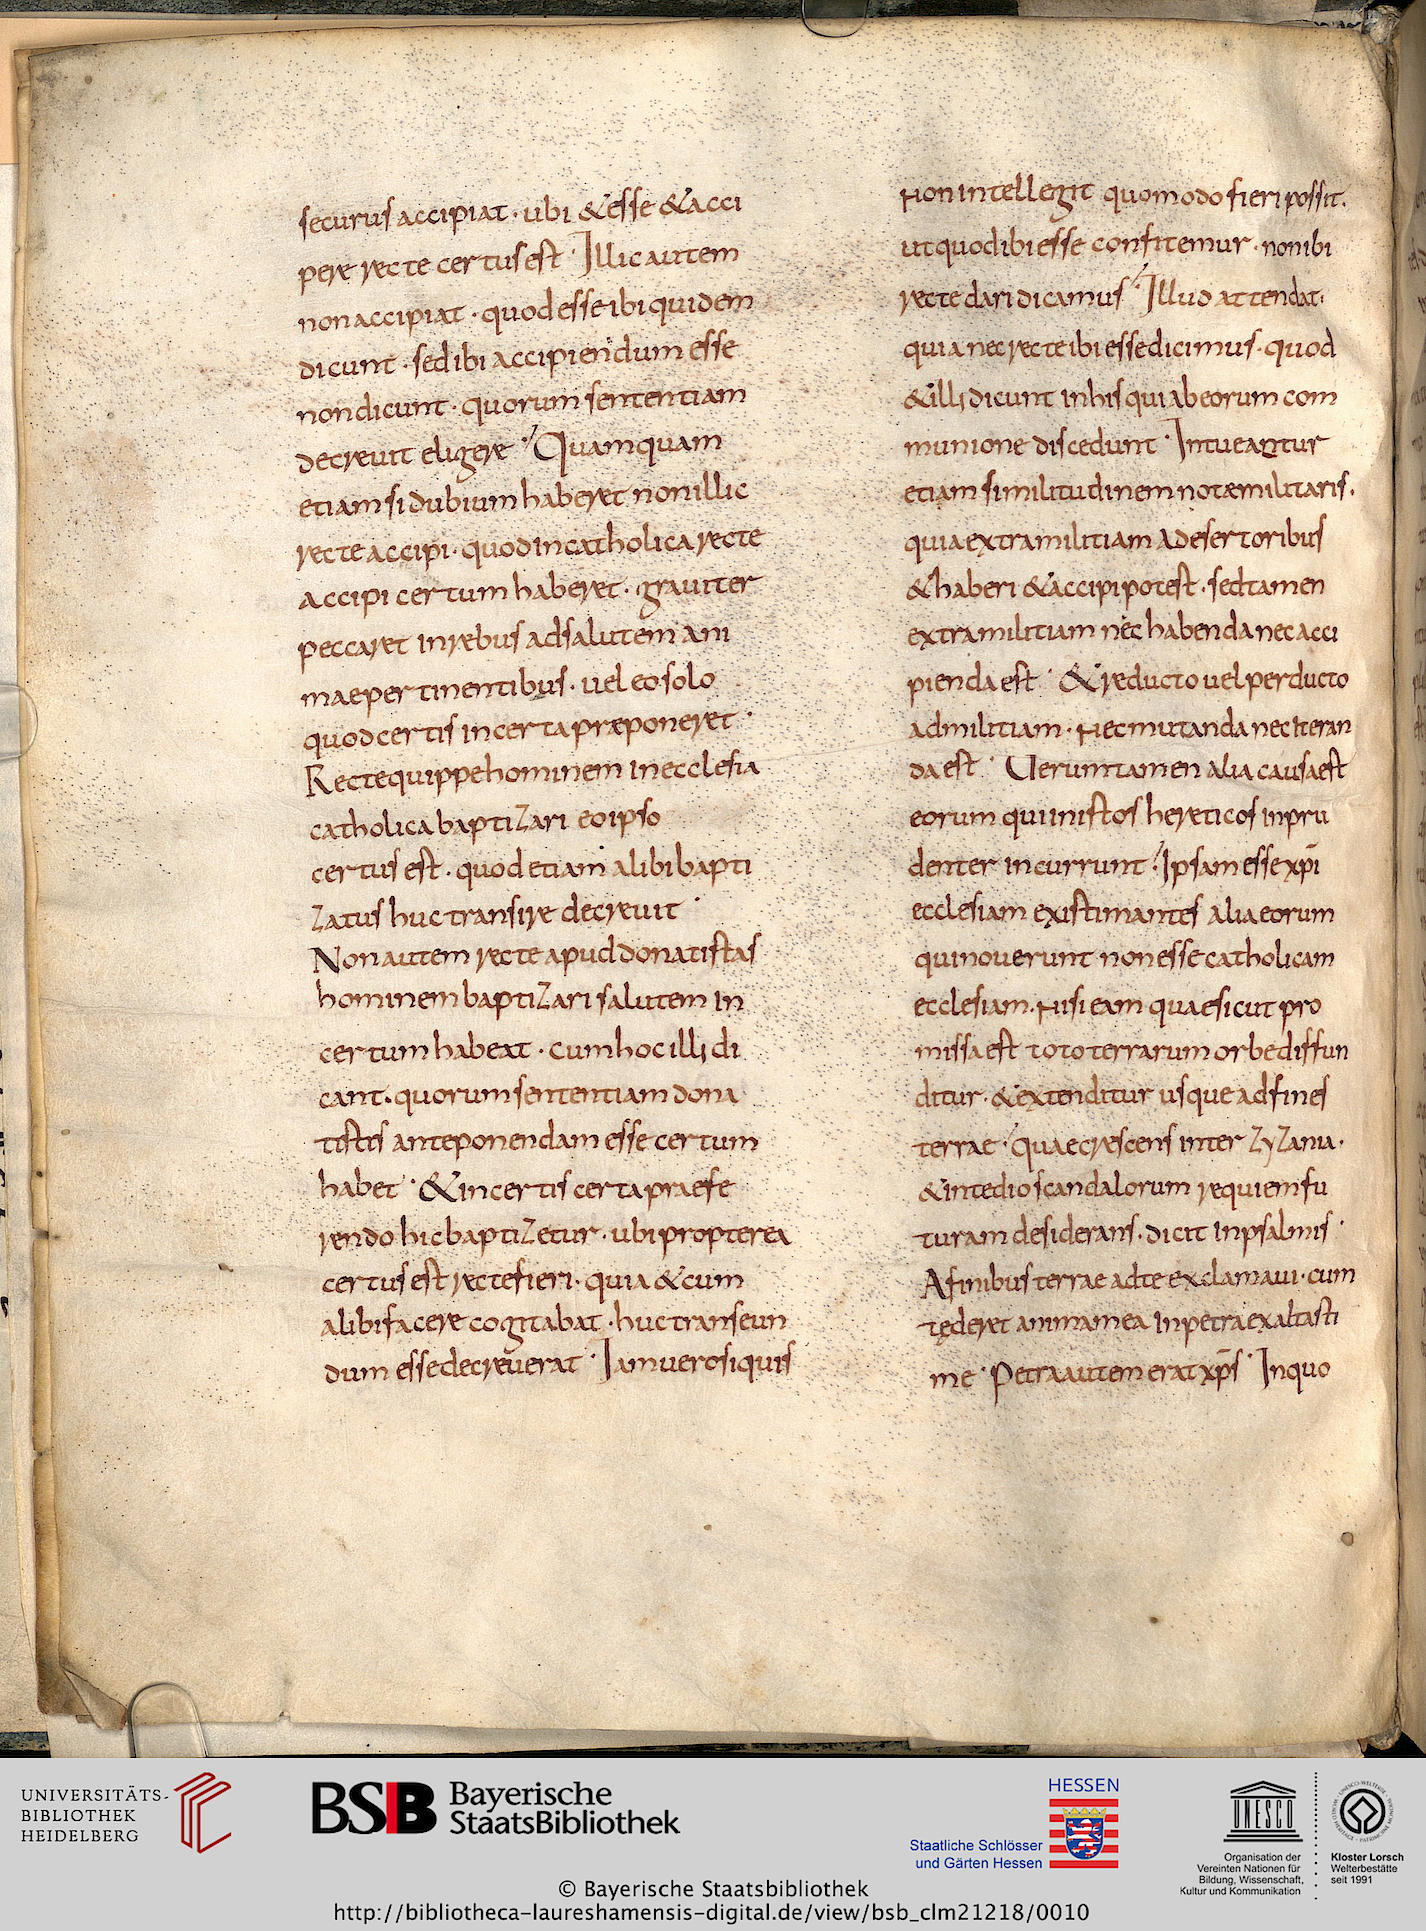 securus accipiat · ubi & esse & acci
pere recte certus est · Illic autem
non accipiat · quod esse ibi quidem
dicunt · sed ibi accipiendum esse
non dicunt · quorum sententiam
decrevit eligere · Quamquam
etiam si dubium haberet non illic
recte accipi · quod in catholica recte
accipi certum haberet · graviter
peccaret in rebus ad salutem ani
mae pertinentibus · vel eo solo
quod certis incerta præponeret ·
Recte quippe hominem in ecclesia
catholica baptizari eo ipso
certus est · quod etiam alibi bapti
zatus huc transire decrevit ·
Non autem recte apud donatistas
hominem baptizari saltem in
certum habeat · cum hoc illi di
cant · quorum sententiam dona
tistis anteponendam esse certum
habet · & incertis certa praefe
rendo hic baptizetur · ubi propterea
certus est recte fieri · quia & cum
alibi facere cogitabat · huc transeun
dum esse decreverat · Iam vero si quis
Non intellegit quomodo fieri possit ·
ut quod ibi esse confitemur · non ibi
recte dari dicamus · Illud attendat ·
quia nec recte ibi esse dicimus · quod
& illi dicunt in his qui ab eorum com
munione discedunt · Intueantur
etiam similitudinem notæ militaris ·
quia extra militiam a desertoribus
& haberi & accipi potest · sed tamen
extra militiam nec habenda nec acci
pienda est · & reducto vel perducto
ad militiam · Nec mutanda nec iteran
da est · Verumtamen alia causa est
eorum qui in istos hereticos inpru
denter incurrunt · Ipsam esse xp̄i
ecclesiam existimantes alia eorum
qui noverunt non esse catholicam
ecclesiam · Nisi eam quae sicut pro
missa est toto terrarum orbe diffun
ditur · & extenditur usque ad fines
terrae · quae crescens inter zyzania ·
& in tedio scandalorum requiem fu
turam desiderans · dicit in psalmis ·
A finibus terrae ad te exclamavi · cum
tęderet anima mea in petra exaltasti
me · Petra autem erat xp̄s · In quo
UNIVERSITÄTS-
BIBLIOTHEK
HEIDELBERG
BSB Bayerische
StaatsBibliothek
HESSEN
Staatliche Schlösser
und Gärten Hessen
UNESCO
Organisation der
Vereinten Nationen für
Bildung, Wissenschaft,
Kultur und Kommunikation
Kloster Lorsch
Welterbestätte
seit 1991
© Bayerische Staatsbibliothek
http://bibliotheca-laureshamensis-digital.de/view/bsb_clm21218/0010